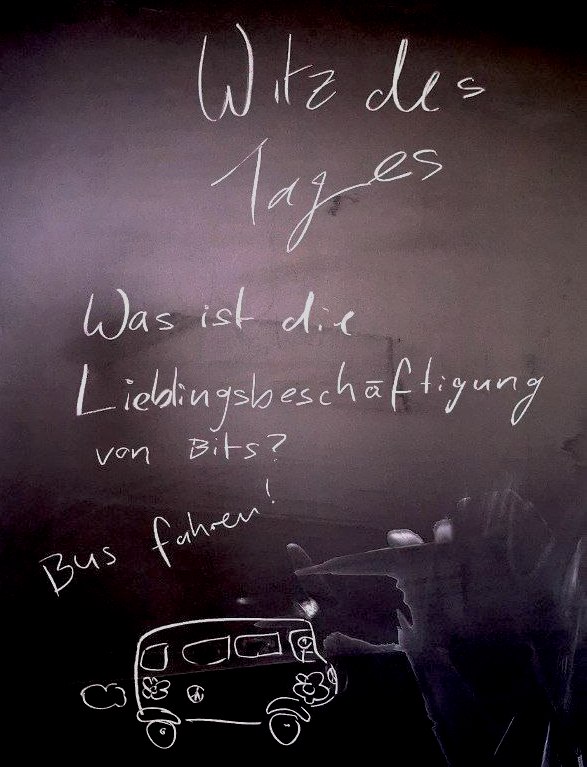 Witz des
Tages
Was ist die
Lieblingsbeschäftigung
von Bits?
Bus fahren!